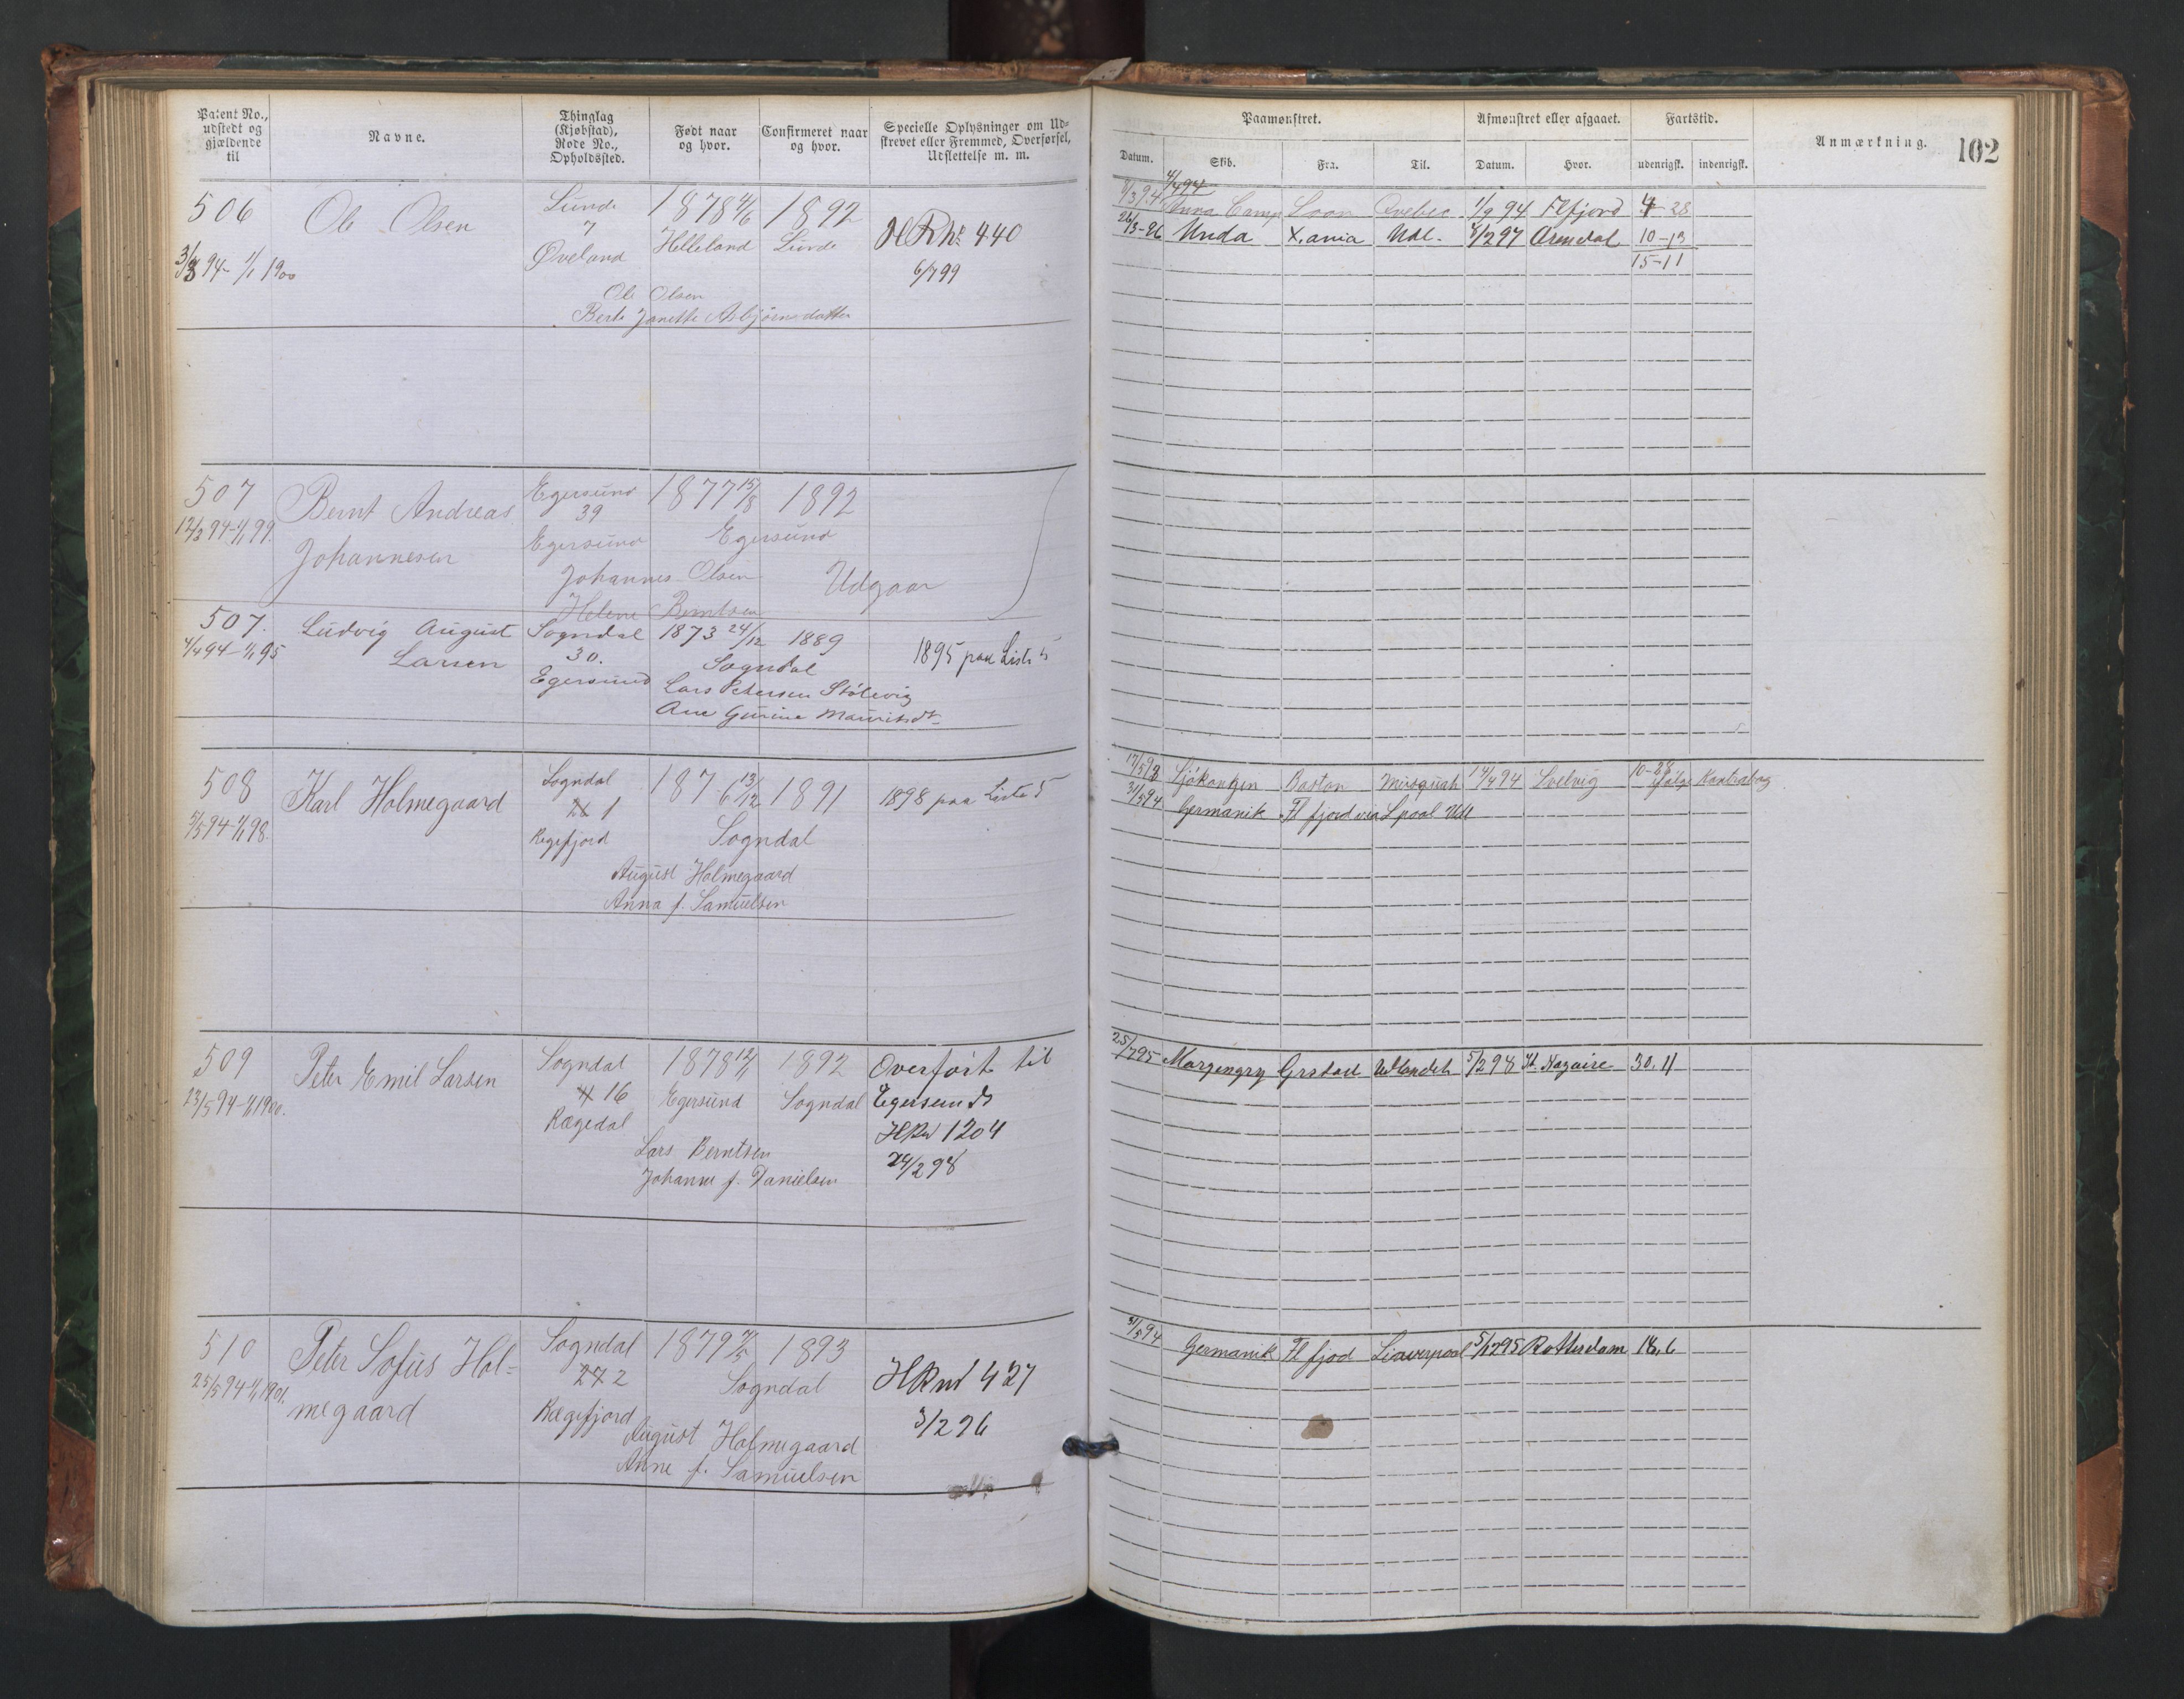 Patent No., udstedt og gjældende til
Navne.
Thinglag (Kjøbstad), Rode No., Opholdssted.
Født naar og hvor.
Confirmeret naar og hvor.
Specielle Oplysninger om Udskrevet eller Fremmed, Overførsel, Udslettelse m. m.
Paamønstret.
Afmønstret eller afgaaet.
Fartstid.
Anmærkning.
102
Datum.
Skib.
Fra.
Til.
Datum.
Hvor.
udenrigsk.
indenrigsk.
506
3/3 94 - 1/1 1900
Ole Olsen
Lunde
7
Øveland
1878 4/6
Helleland
1892
Lunde
HR No 440
6/7 99
Ole Olsen
Berte Janette Asbjørnsdatter
4/4 94
8/3 94 Anna Camp Soon 1/9 94 Flfjord 4 28
26/3-96 Unda X.ania Udl. 8/2 97 Arendal 10-13
15-11
507
12/3 94-1/1 99.
Bernt Andreas
Johannesen
Egersund
39
Egersund
1877 15/8
1892
Egersund
Johannes Olsen
Helene Berntsen
Udgaar
507.
4/4 94-1/1 95
Ludvig August
Larsen
Sogndal
30.
Egersund
1873 24/12
1889
Sogndal
Lars Petersen Stølevig
Ane Gurine Mauritsdt.
1895 paa Liste 5
508
5/5 94-1/1 98.
Karl Holmegaard
Sogndal
1
Rægefjord
1876 13/12
1891
Sogndal
1898 paa Liste 5
August Holmegaard
Anna f. Samuelsen
17/5 93 Sjøkongen Boston 14/4 94 Svelvig 10-28
31/5 94 Germanik Flfjord via Lpool Udl
509
23/5 94-1/1 1900.
Peter Emil Larsen
Sogndal
4 16
Rægedal
1878 12/1
Egersund
1892
Sogndal
Overført til
Egersunds
HRul 1204
24/2 98
Lars Berntsen
Johanne f. Danielsen
25/7 95 Grstad Udlandet 5/2 98 St. Nazaire 30. 11
510
25/5 94-1/1 1901.
Peter Sofus Hol-
megaard
Sogndal
27 2
Rægefjord
1879 7/5
1893
Sogndal
HRul 427
3/2 96
August Holmegaard
Anne f. Samuelsen
31/5 94 Germanik Flfjod Liverpool 5/12 95 Rotterdam 18. 6